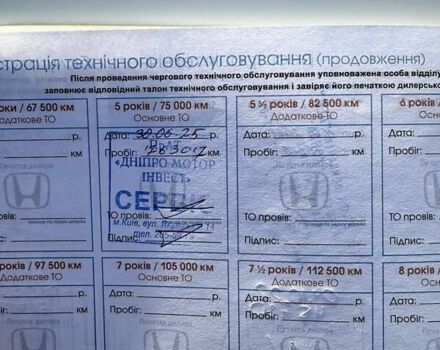 страція технічного обслуговування (продовження)
Після проведення чергового технічного обслуговування уповноважена особа відділу
заповнює відповідний талон технічного обслуговування і завіряє його печаткою дилерсько
оки / 67 500 км
Додаткове ТО
р.
км
Печатка дилера
5 років / 75 000 км
Основне ТО
Дата: 30.06.25 р.
Пробіг: км
ПрАТ
«ДНІПРО МОТОР
ІНВЕСТ»
СЕРВІС
ТО провів:
м.Київ, вул.
тел.
Підпис:
5 ½ років / 82 500 км
Додаткове ТО
Дата: р.
Пробіг: км
Печатка дилера
ТО провів:
Підпис:
6 рокі
Осн
Дата:
Пробіг:
Печа
ТО провів:
Підпис:
/ 97 500 км
Додаткове ТО
р.
км
Печатка дилера
7 років / 105 000 км
Основне ТО
Дата: р.
Пробіг: км
Печатка дилера
7 ½ років / 112 500 км
Додаткове ТО
Дата: р.
Пробіг: км
Печатка дилера
8 років /
Осно
Дата:
Пробіг:
Печат